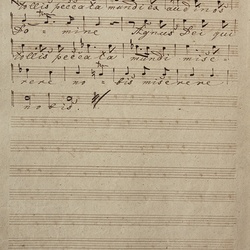 tollis peccata mundi ex audi nos
Do - mine Agnus Dei qui
tollis peccata mundi mise-
rere no - bis miserere
nobis.